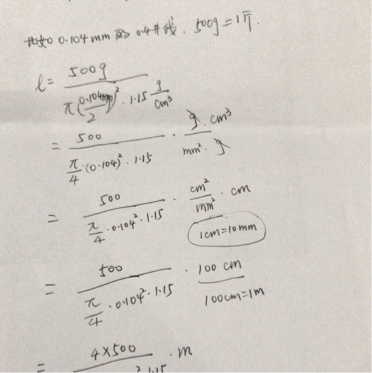 比如 0.104mm 的 0.4# 线. 500g = 1斤.
l = 500g / π(0.104mm/2)² · 1.15 g/cm³
= 500 / π/4 · (0.104)² · 1.15 · g · cm³ / mm² · g
= 500 / π/4 · 0.104² · 1.15 · cm²/mm² · cm
1cm=10mm
= 500 / π/4 · 0.104² · 1.15 · 100 cm
100cm=1m
= 4×500 / ² 1.15 · m